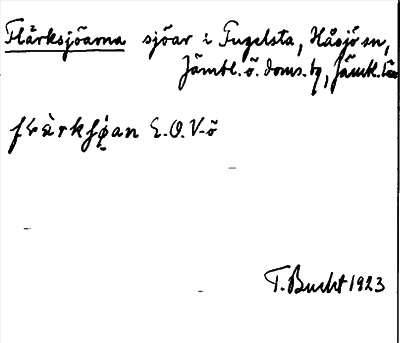 Flärksjöarna sjöar i Fugelsta, Håsjö sn,
Jämtl. ö. doms. tg, Jämtl. län
E.O.V-ö
T. Bucht 1923